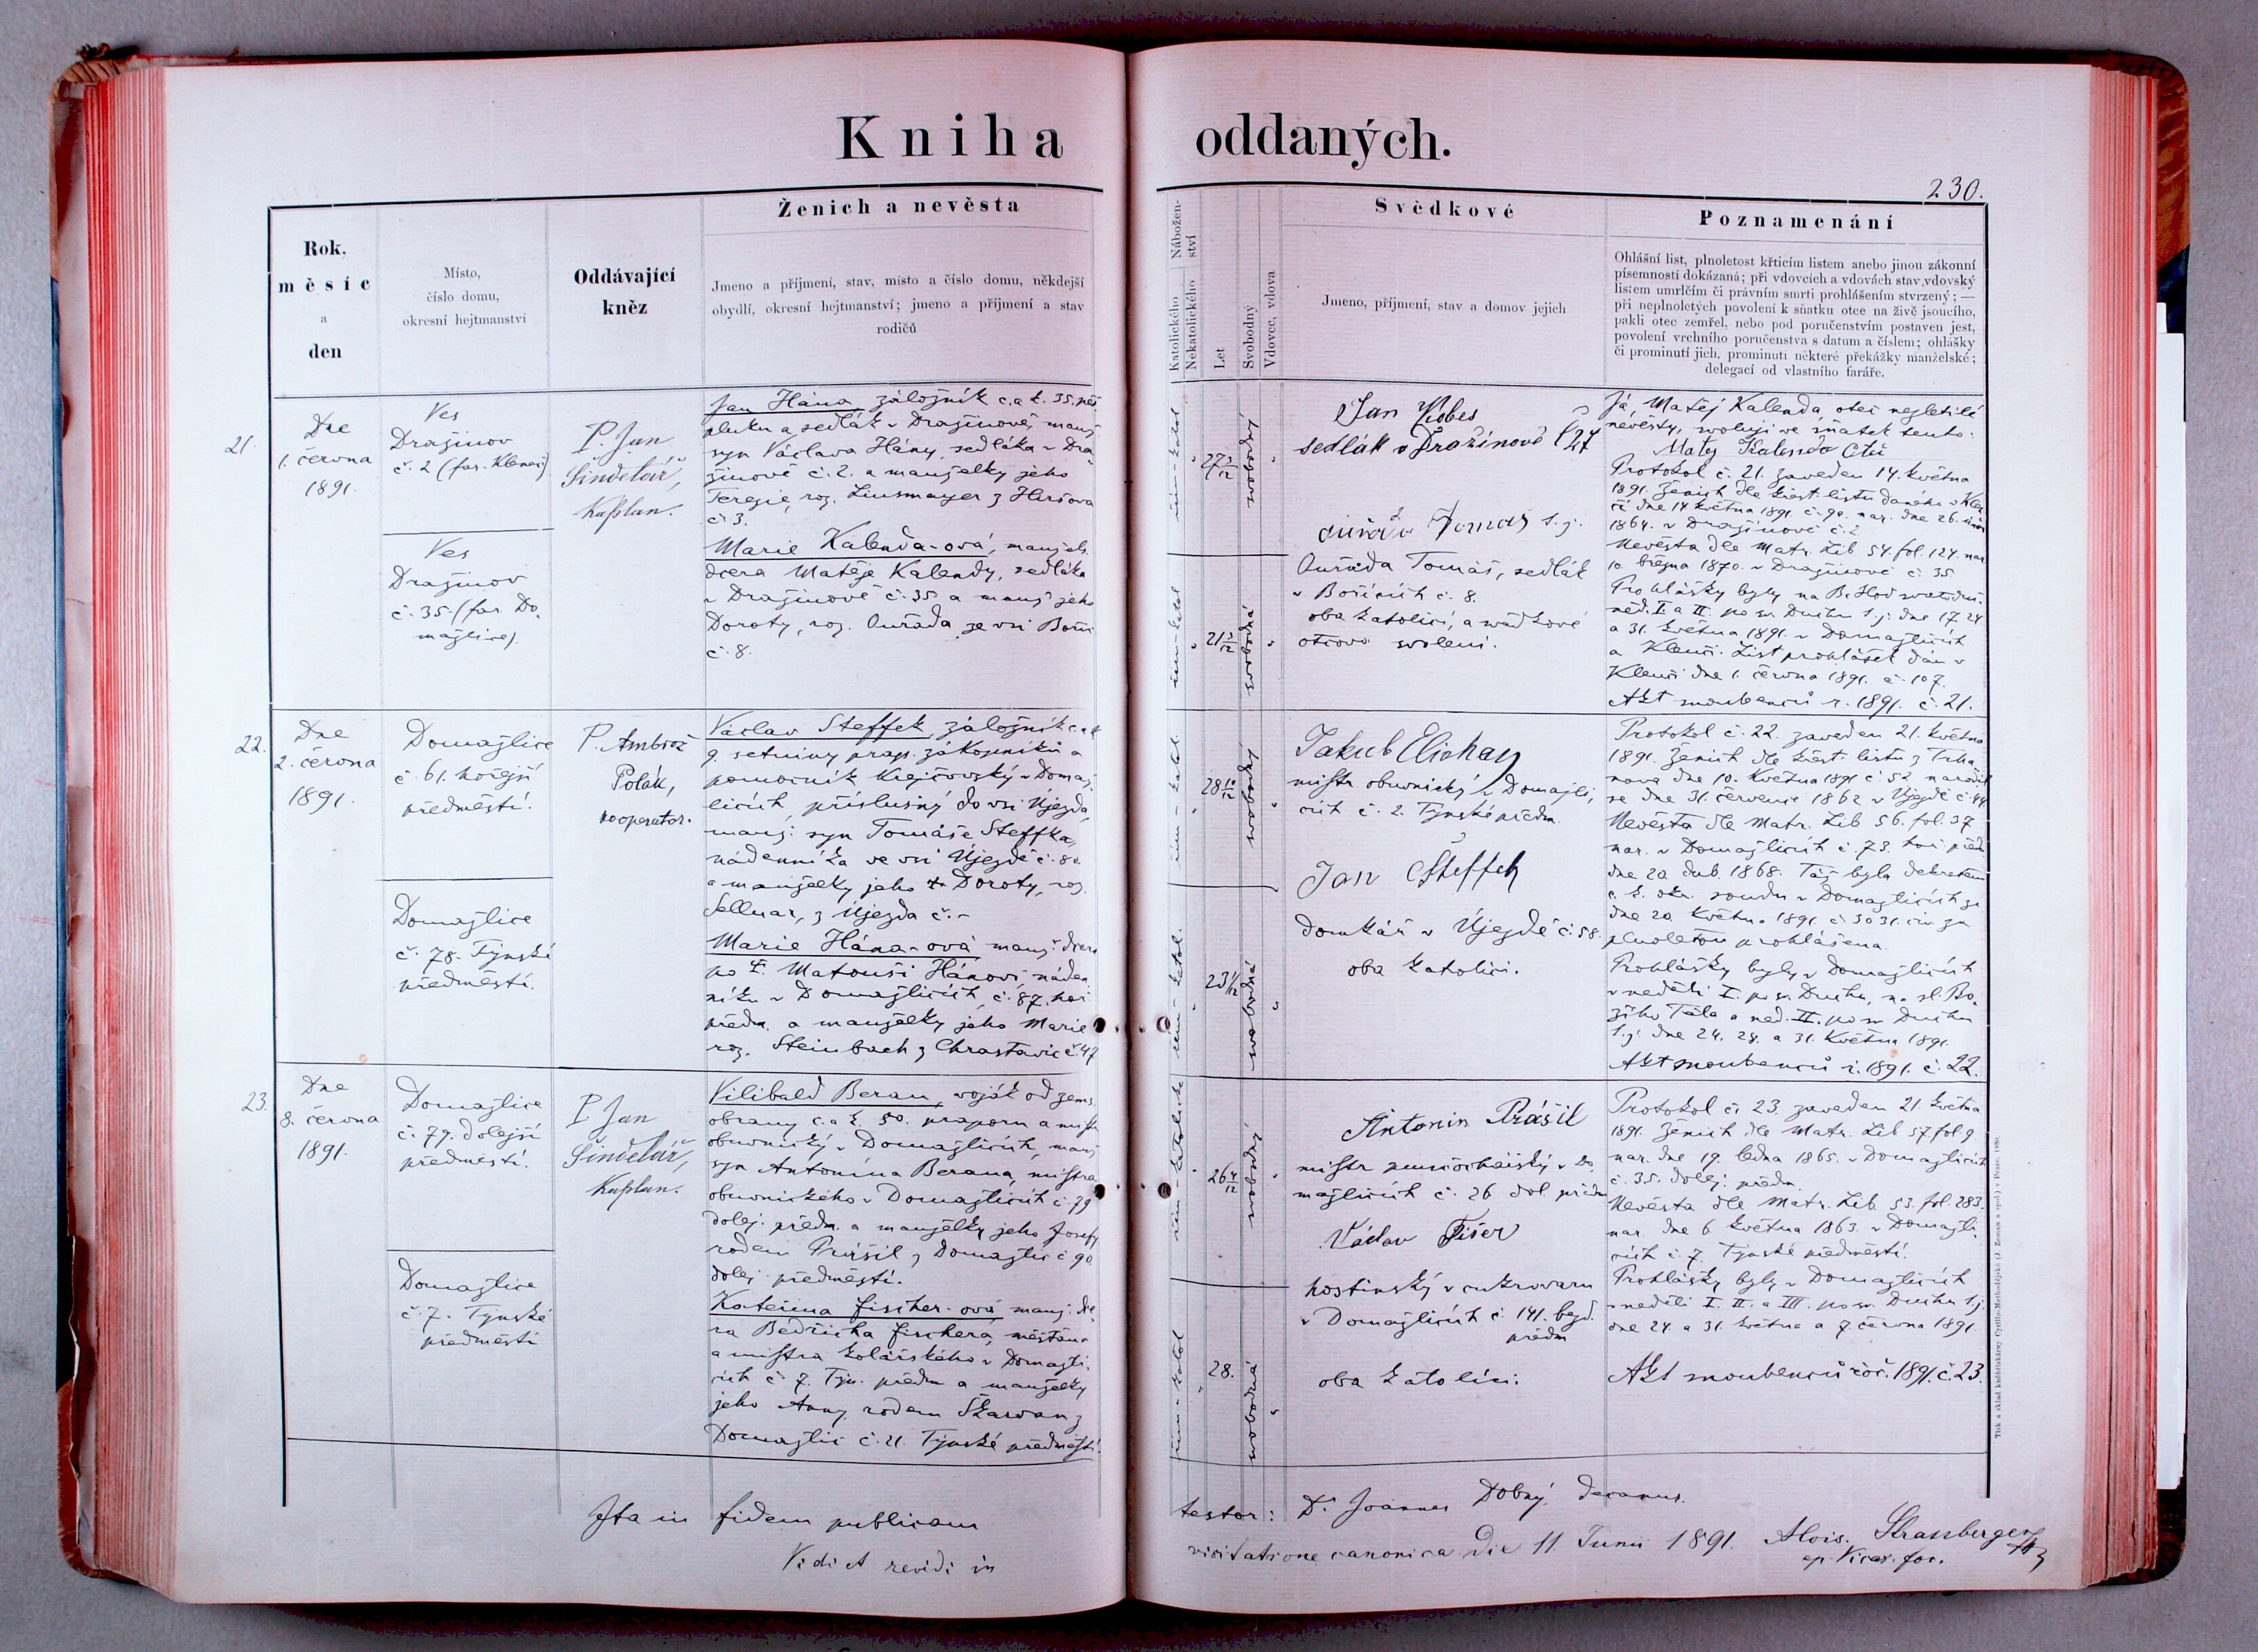 Kniha oddaných.
230.
Rok,
měsíc
a
den
Místo,
číslo domu,
okresní hejtmanství
Oddávající
kněz
Ženich a nevěsta
Jmeno a příjmení, stav, místo a číslo domu, někdejší
obydlí, okresní hejtmanství; jmeno a příjmení a stav
rodičů
Nábožen-
ství
Katolického
Nekatolického
Let
Svobodný
Vdovec, vdova
Svědkové
Jmeno, příjmení, stav a domov jejich
Poznamenání
Ohlášní list, plnoletost křticím listem anebo jinou zákonní
písemností dokázaná; při vdovcích a vdovách stav vdovský
listem umrlčím či právním smrti prohlášením stvrzený; —
při neplnoletých povolení k sňatku otce na živě jsoucího,
pakli otec zemřel, nebo pod poručenstvím postaven jest,
povolení vrchního poručenstva s datum a číslem; ohlášky
či prominutí jich, prominutí některé překážky manželské;
delegací od vlastního faráře.
21.
Dne
1. června
1891.
Ves
Dražinov
č. 2 (far. Kleneč)
Ves
Dražinov
č. 35. (far. Do-
mažlice).
P. Jan
Šindelář,
Kaplan.
Jan Hána, záložník c. a k. 35. pěš.
pluku a sedlák v Dražinově, manž.
syn Václava Hány, sedláka v Dra-
žinově č. 2. a manželky jeho
Terezie, roz. Linsmayer z Hršova
č. 3.
Marie Kalenda-ová, manžels.
dcera Matěje Kalendy, sedláka
v Dražinově č. 35 a manž. jeho
Doroty, roz. Auřada ze vsi Boříc
č. 8.
řím-katol
27 3/12
svobodný
řím-katol
21 3/12
svobodná
Jan Kobes
sedlák v Dražinově č 27
Auřada Tomáš s. j.
Auřada Tomáš, sedlák
v Bořicích č. 8.
oba katolíci, a svědkové
otcova svolení.
Já, Matěj Kalenda, otec nezletilé
nevěsty, svoluji ve sňatek tento:
Matěj Kalenda Otec
Protokol č. 21. zaveden 14. května
1891. Ženich dle křest. listu daného v Klen-
čí dne 14 května 1891 č. 90. nar. dne 26. února
1864. v Dražinově č. 2
Nevěsta dle Matr. Lib 54. fol. 124. nar
10. března 1870. v Dražinově č. 35
Prohlášky byly na B. Hod svatoduš.
něd. I. a II. po sv. Duchu t. j. dne 17. 24
a 31. května 1891. v Domažlicích
a Klenčí. List prohlášek dán v
Klenči dne 1. června 1891. č. 107.
Akt snoubenců r. 1891. č. 21.
22.
Dne
2. června
1891.
Domažlice
č. 61. hořejší
předměstí.
Domažlice
č. 78. Týnské
předměstí.
P. Ambrož
Polák,
kooperator.
Václav Steffek, záložník c. a k
9. setniny prap. zákopníků a
pomocník krejčovský v Domaž-
licích, příslušný do vsi Újezda,
manž. syn Tomáše Steffka,
nádenníka ve vsi Újezdě č. 80.
a manželky jeho Doroty, roz.
Sellnar, z Újezda č. –
Marie Hána-ová manž. dcera
po † Matouši Hánovi, náden-
níku v Domažlicích, č. 87. hoř.
předm. a manželky jeho Marie
roz. Steinbach z Chrastavic č. 47
řím-katol.
28 10/12
svobodný
řím-katol.
23 1/12
svobodná
Jakub Elichay
mistr obuvnický v Domažli-
cích č. 2. Týnské předm.
Jan Šteffek
domkář v Újezdě č. 58.
oba katolíci.
Protokol č. 22. zaveden 21. května
1891. Ženich dle křest. listu z Trha-
nova dne 10. května 1891 č 52 narodil
se dne 31. července 1862 v Újezdě č. 44
Nevěsta dle Matr. Lib 56. fol. 37
nar. v Domažlicích č. 73. hoř. před.
dne 20 dub. 1868. Táž byla dekretem
c. k. okr. soudu v Domažlicích ze
dne 20 května 1891 č. 3031. civ za
plnoletou prohlášena.
Prohlášky byly v Domažlicích
v neděli I. po sv. Duchu, na sl. Bo-
žího Těla a ned. II. po sv Duchu
t. j. dne 24. 28. a 31. Května 1891.
Akt snoubenců r. 1891. č. 22.
23.
Dne
8. června
1891.
Domažlice
č. 79. dolejší
předměstí.
Domažlice
č. 7. Týnské
předměstí
P. Jan
Šindelář,
Kaplan.
Vilibald Beran, voják od zems.
obrany c. a k. 50. praporu a mistr
obuvnický v Domažlicích, manž
syn Antonína Berana, mistra
obuvnického v Domažlicích č. 79
dolej. předm. a manželky jeho Josefy
rodem Prášil z Domažlic č 90
dolej. předměstí.
Kateřina Fischer-ová manž. dce-
ra Bedřicha Fischera, měšťana
a mistra kolářského v Domažli-
cích č. 7. Týn. předm a manželky
jeho Anny, rodem Škarvan z
Domažlic č. 21. Týnské předměstí.
řím-katolické
26 4/12
svobodný
řím-katol
28.
svobodná
Antonin Prášil
mistr v Do-
mažlicích č. 26 dol. předm
Václav Fišer
hostinský v cukrovaru
v Domažlicích č. 141. bezd.
předm
oba katolíci.
Protokol č. 23. zaveden 21. května
1891. Ženich dle Matr. Lib 57. fol 9
nar. dne 19. ledna 1865. v Domažlicích
č. 35. dolej. předm.
Nevěsta dle Matr. Lib. 53. fol. 283.
nar dne 6 května 1863. v Domažli-
cích č. 7. Týnské předměstí.
Prohlášky byly v Domažlicích
v neděli I. II. a III. po sv. Duchu t. j.
dne 24 a 31. května a 7. června 1891
Akt snoubenců 1891. č. 23.
Ita in fidem publicam testor: Dr. Joannes Dobrý, decanus.
Vidi et revidi in visitatione canonica die 11. Junii 1891. Alois. Strassberger
ep. Vicar. for.
Tisk a sklad knihtiskárny Cyrillo-Methodějské (J. Zeman a spol.) v Praze.